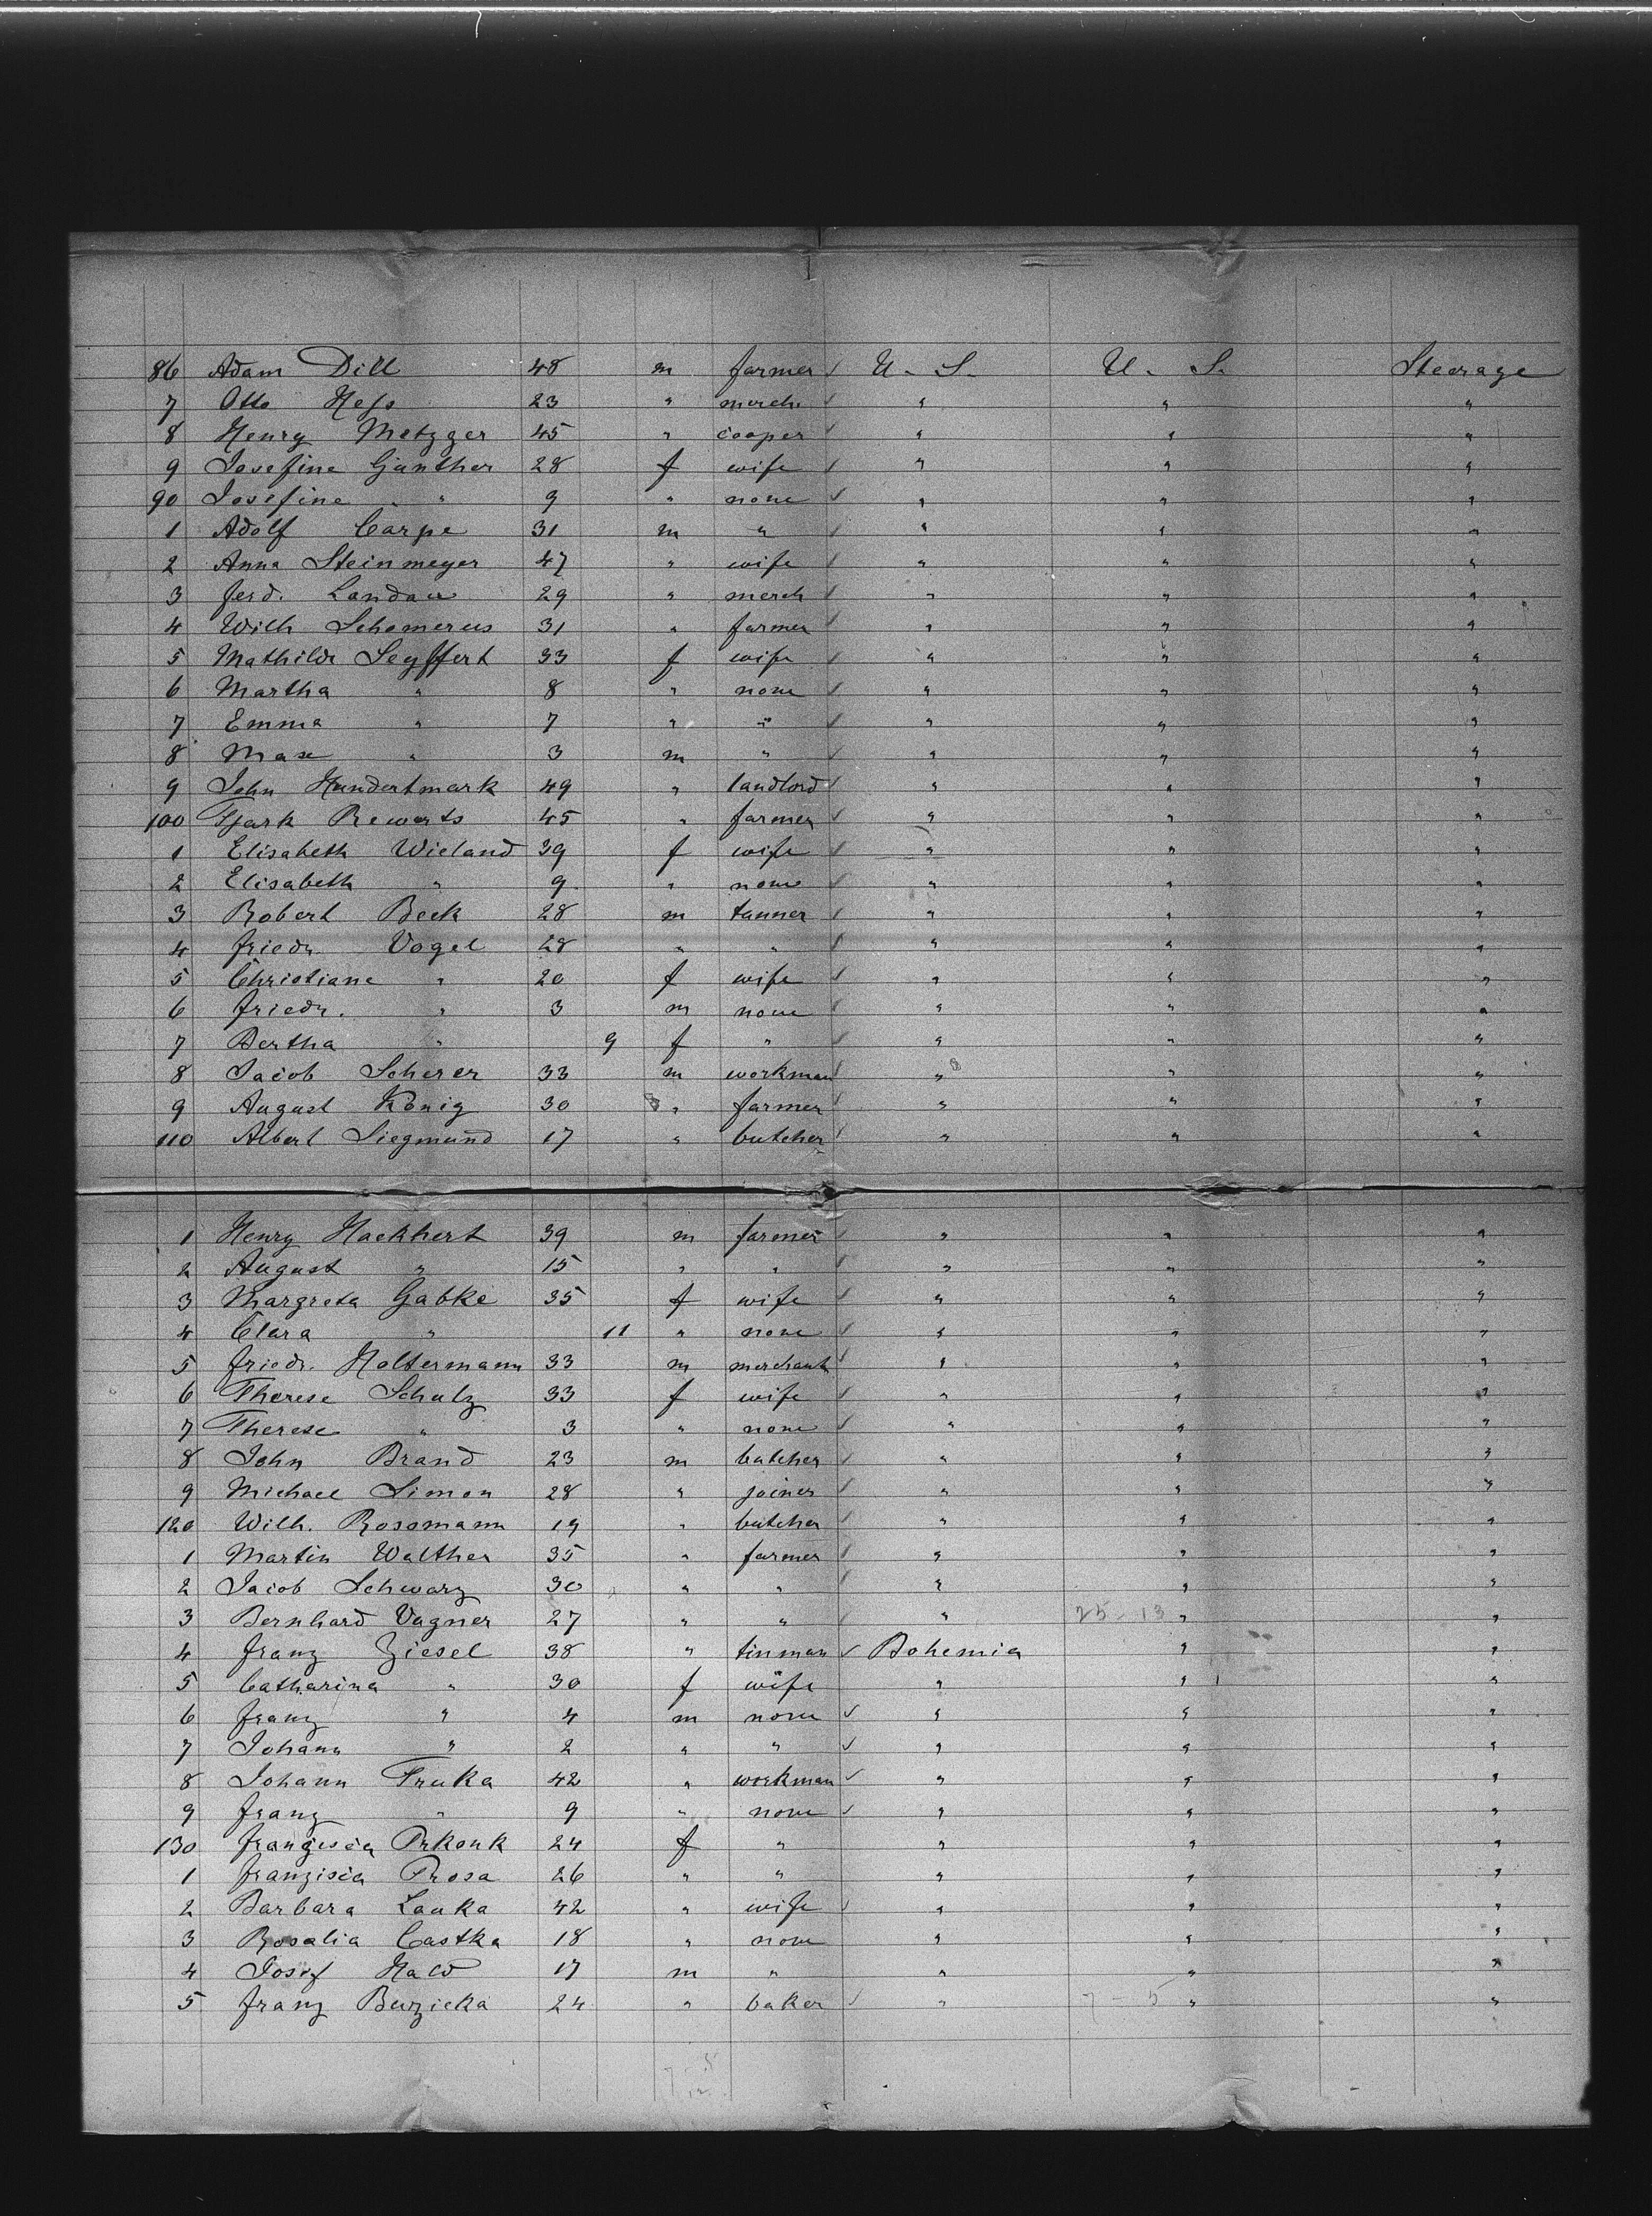 86 Adam Dill 48 m farmer ✓ U. S. U. S. Steerage
7 Otto Hess 23 " merch. ✓ " " "
8 Henry Metzger 45 " cooper ✓ " " "
9 Josefine Günther 28 f wife ✓ " " "
90 Josefine " 9 " none ✓ " " "
1 Adolf Carpe 31 m " ✓ " " "
2 Anna Steinmeyer 47 " wife ✓ " " "
3 Ferd. Landau 29 " merch ✓ " " "
4 Wilh Schomerus 31 " farmer ✓ " " "
5 Mathilde Seyffert 33 f wife ✓ " " "
6 Martha " 8 " none ✓ " " "
7 Emma " 7 " " ✓ " " "
8 Max " 3 m " ✓ " " "
9 John Hundertmark 49 " landlord ✓ " " "
100 Tjark Rewerts 45 " farmer ✓ " " "
1 Elisabeth Wieland 39 f wife ✓ " " "
2 Elisabeth " 9 " none ✓ " " "
3 Robert Beck 28 m tanner ✓ " " "
4 Friedr. Vogel 28 " " ✓ " " "
5 Christiane " 20 f wife ✓ " " "
6 Friedr. " 3 m none ✓ " " "
7 Bertha " 9 f " ✓ " " "
8 Jacob Scherer 33 m workman ✓ " " "
9 August König 30 " farmer ✓ " " "
110 Albert Siegmund 17 " butcher ✓ " " "
1 Henry Hackhert 39 m farmer ✓ " " "
2 August " 15 " " ✓ " " "
3 Margreta Gabke 35 f wife ✓ " " "
4 Clara " 11 " none ✓ " " "
5 Friedr. Holtermann 33 m merchant ✓ " " "
6 Therese Schulz 33 f wife ✓ " " "
7 Therese " 3 " none ✓ " " "
8 John Brand 23 m butcher ✓ " " "
9 Michael Simon 28 " joiner ✓ " " "
120 Wilh. Rossmann 19 " butcher ✓ " " "
1 Martin Walther 35 " farmer ✓ " " "
2 Jacob Schwarz 30 " " ✓ " " "
3 Bernhard Vagner 27 " " ✓ " 25 13 " "
4 Franz Ziesel 38 " tinman ✓ Bohemia " "
5 Catharina " 30 f wife " " "
6 Franz " 4 m none ✓ " " "
7 Johann " 2 " " ✓ " " "
8 Johann Fruka 42 " workman ✓ " " "
9 Franz " 9 " none ✓ " " "
130 Franzisca Prkonk 24 f " " " "
1 Franzisca Prosa 26 " " " " "
2 Barbara Lauka 42 " wife ✓ " " "
3 Rosalia Castka 18 " none " " "
4 Josef Hald 17 m " " " "
5 Franz Buzicka 24 " baker ✓ " 7 - 5 " "